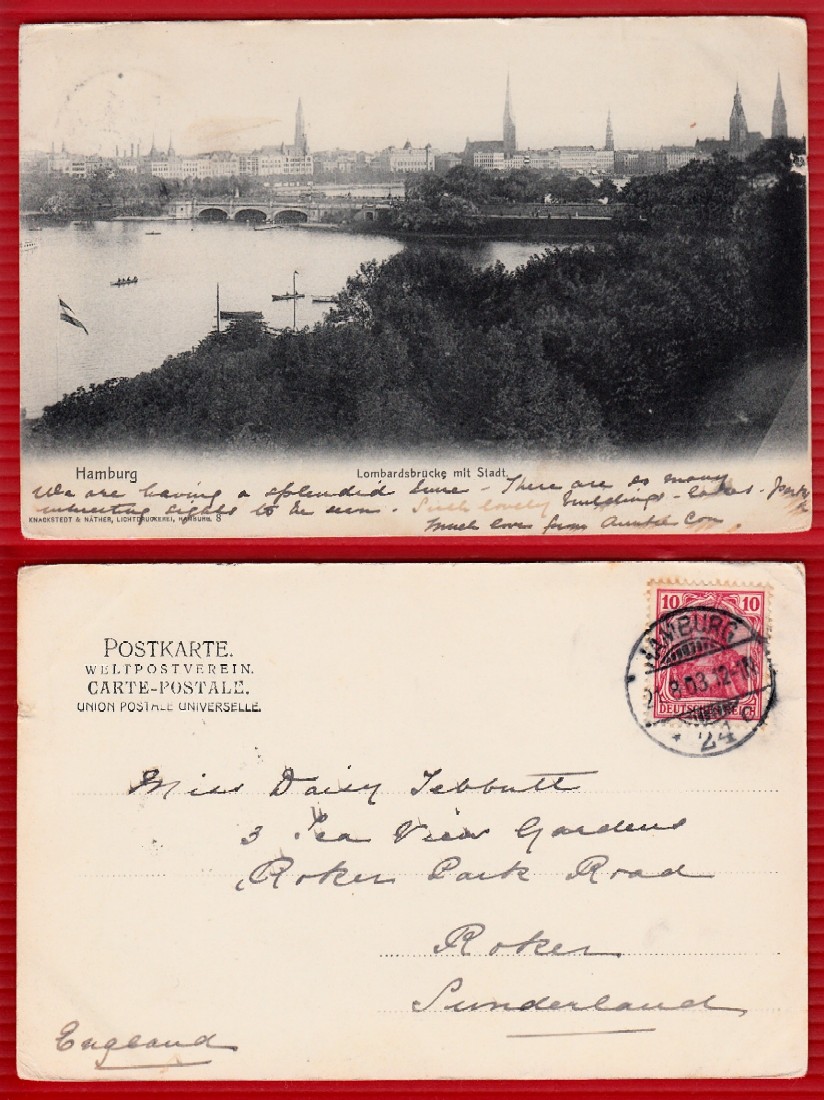 Hamburg
Lombardsbrücke mit Stadt.
We are having a splendid time - There are so many
interesting sights to be seen. Such lovely buildings - lakes - parks
Much love from Auntie Con
KNACKSTEDT & NÄTHER, LICHTDRUCKEREI, HAMBURG. 8
POSTKARTE.
WELTPOSTVEREIN.
CARTE-POSTALE.
UNION POSTALE UNIVERSELLE.
10 10
DEUTSCHES REICH
HAMBURG
8.03.12-
24
Miss Daisy Tebbutt
3 Sea View Gardens
Roker Park Road
Roker
Sunderland
England